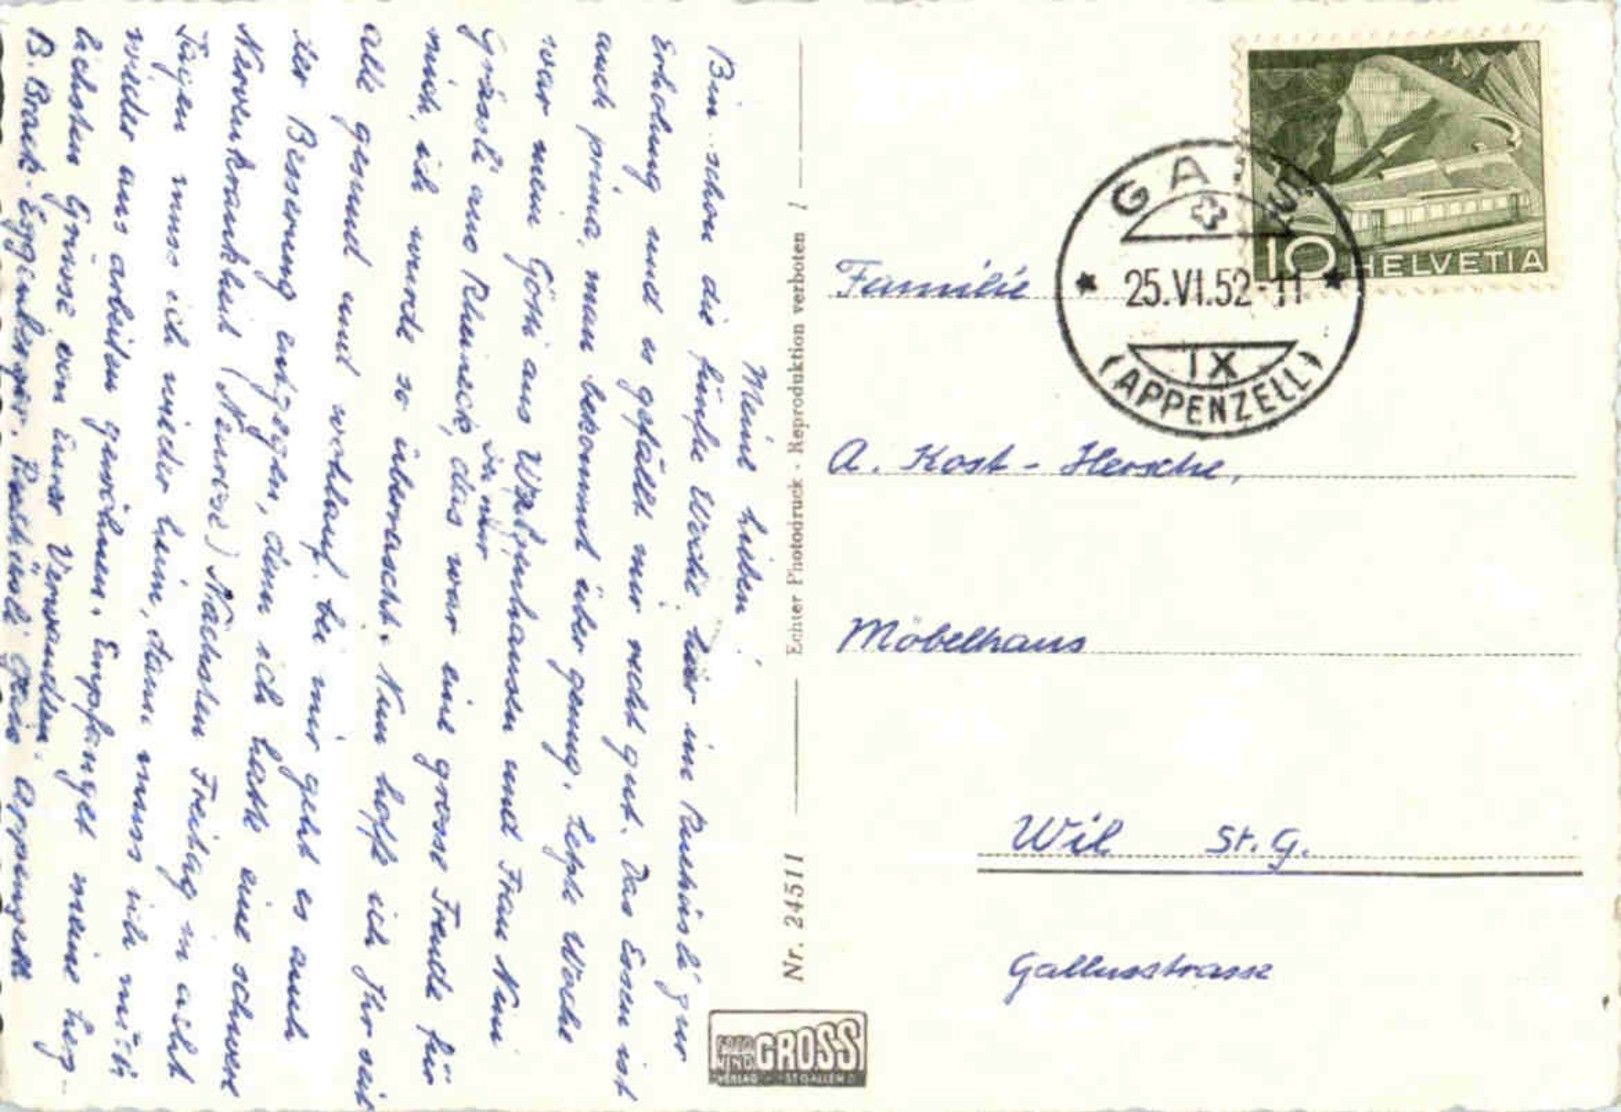 Meine lieben!
Bin schon die fünfte Woche hier im Ruhhüsli zur
Erholung und es gefällt mir recht gut. Das Essen ist
auch prima, man bekommt über genug. Letzte Woche
war mein Götti aus und Frau Nuni
Grässli aus Rheineck, das war eine grosse Freude für
mich, ich wurde so überrascht. Nun hoffe ich Ihr seit
alle gesund und wohlauf, bei mir geht es auch
der Besserung entgegen, denn ich hatte eine schwere
Nervenkrankheit (Neurose) Nächsten Freitag in acht
Tagen muss ich wieder heim, dann muss ich mich
wieder ans arbeiten gewöhnen. Empfanget meine herz-
lichsten Grüsse von Eurer Verwandten.
B. Brack-Eggenberger. Gais Appenzell
Nr. 24511
Echter Photodruck · Reproduktion verboten !
FOTO
GROSS
VERLAG ST.GALLEN
HELVETIA
10
25.VI.52-11
IX
(APPENZELL)
Familie
A. Kost-Hersche,
Möbelhaus
Wil St. G.
Gallusstrasse